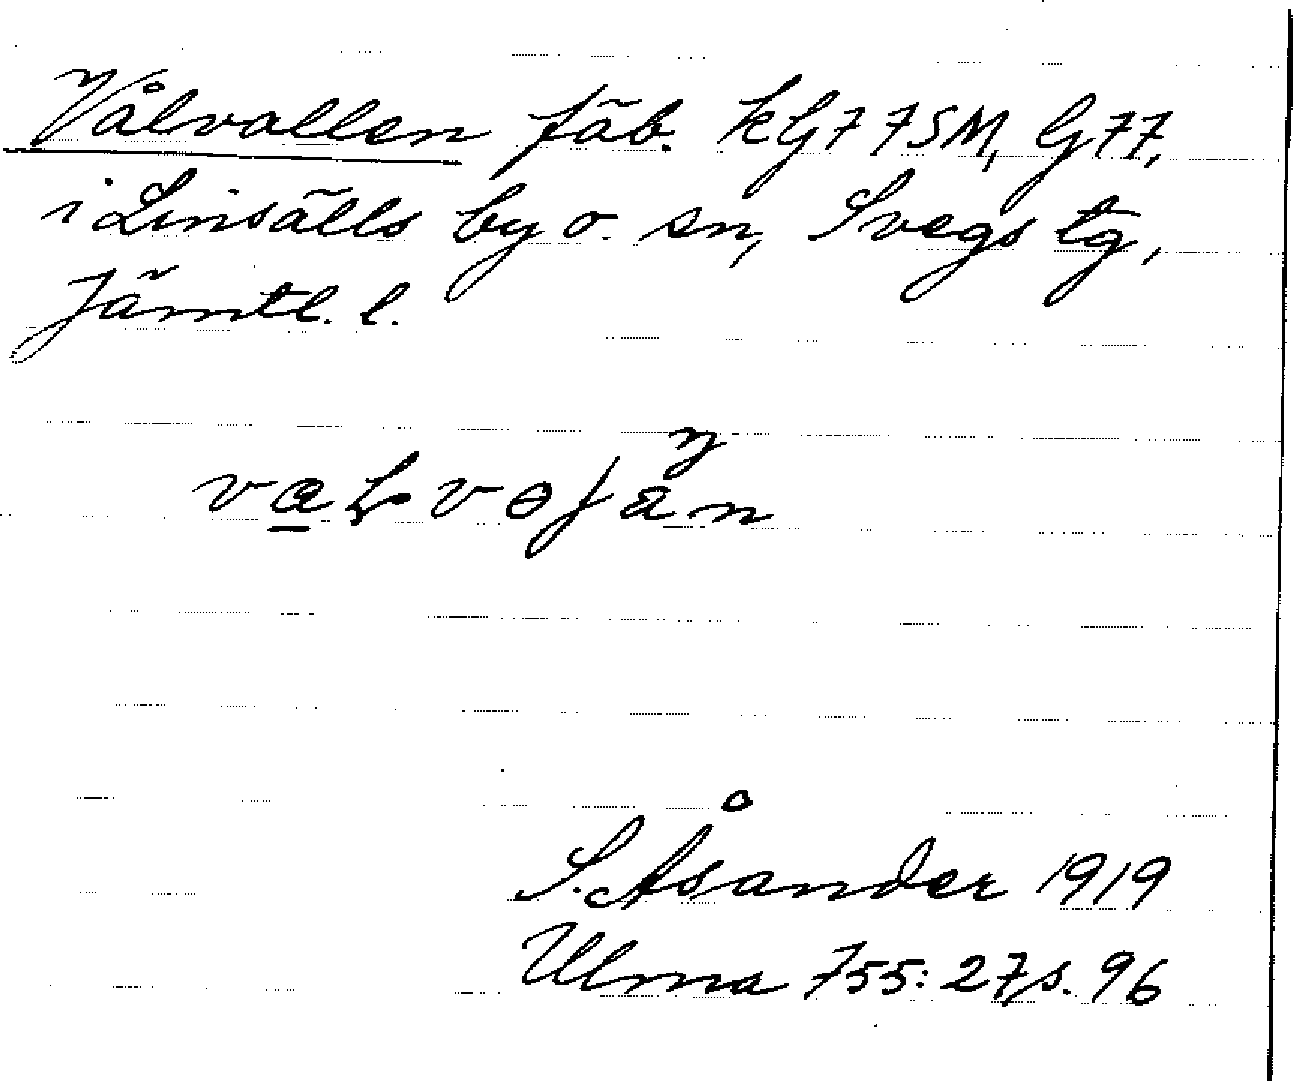 Vålvallen fäb. kG77SM, G77,
i Linsälls by o. sn, Svegs tg,
Jämtl. l.
S. Åsander 1919
Ulma 755:27, s. 96